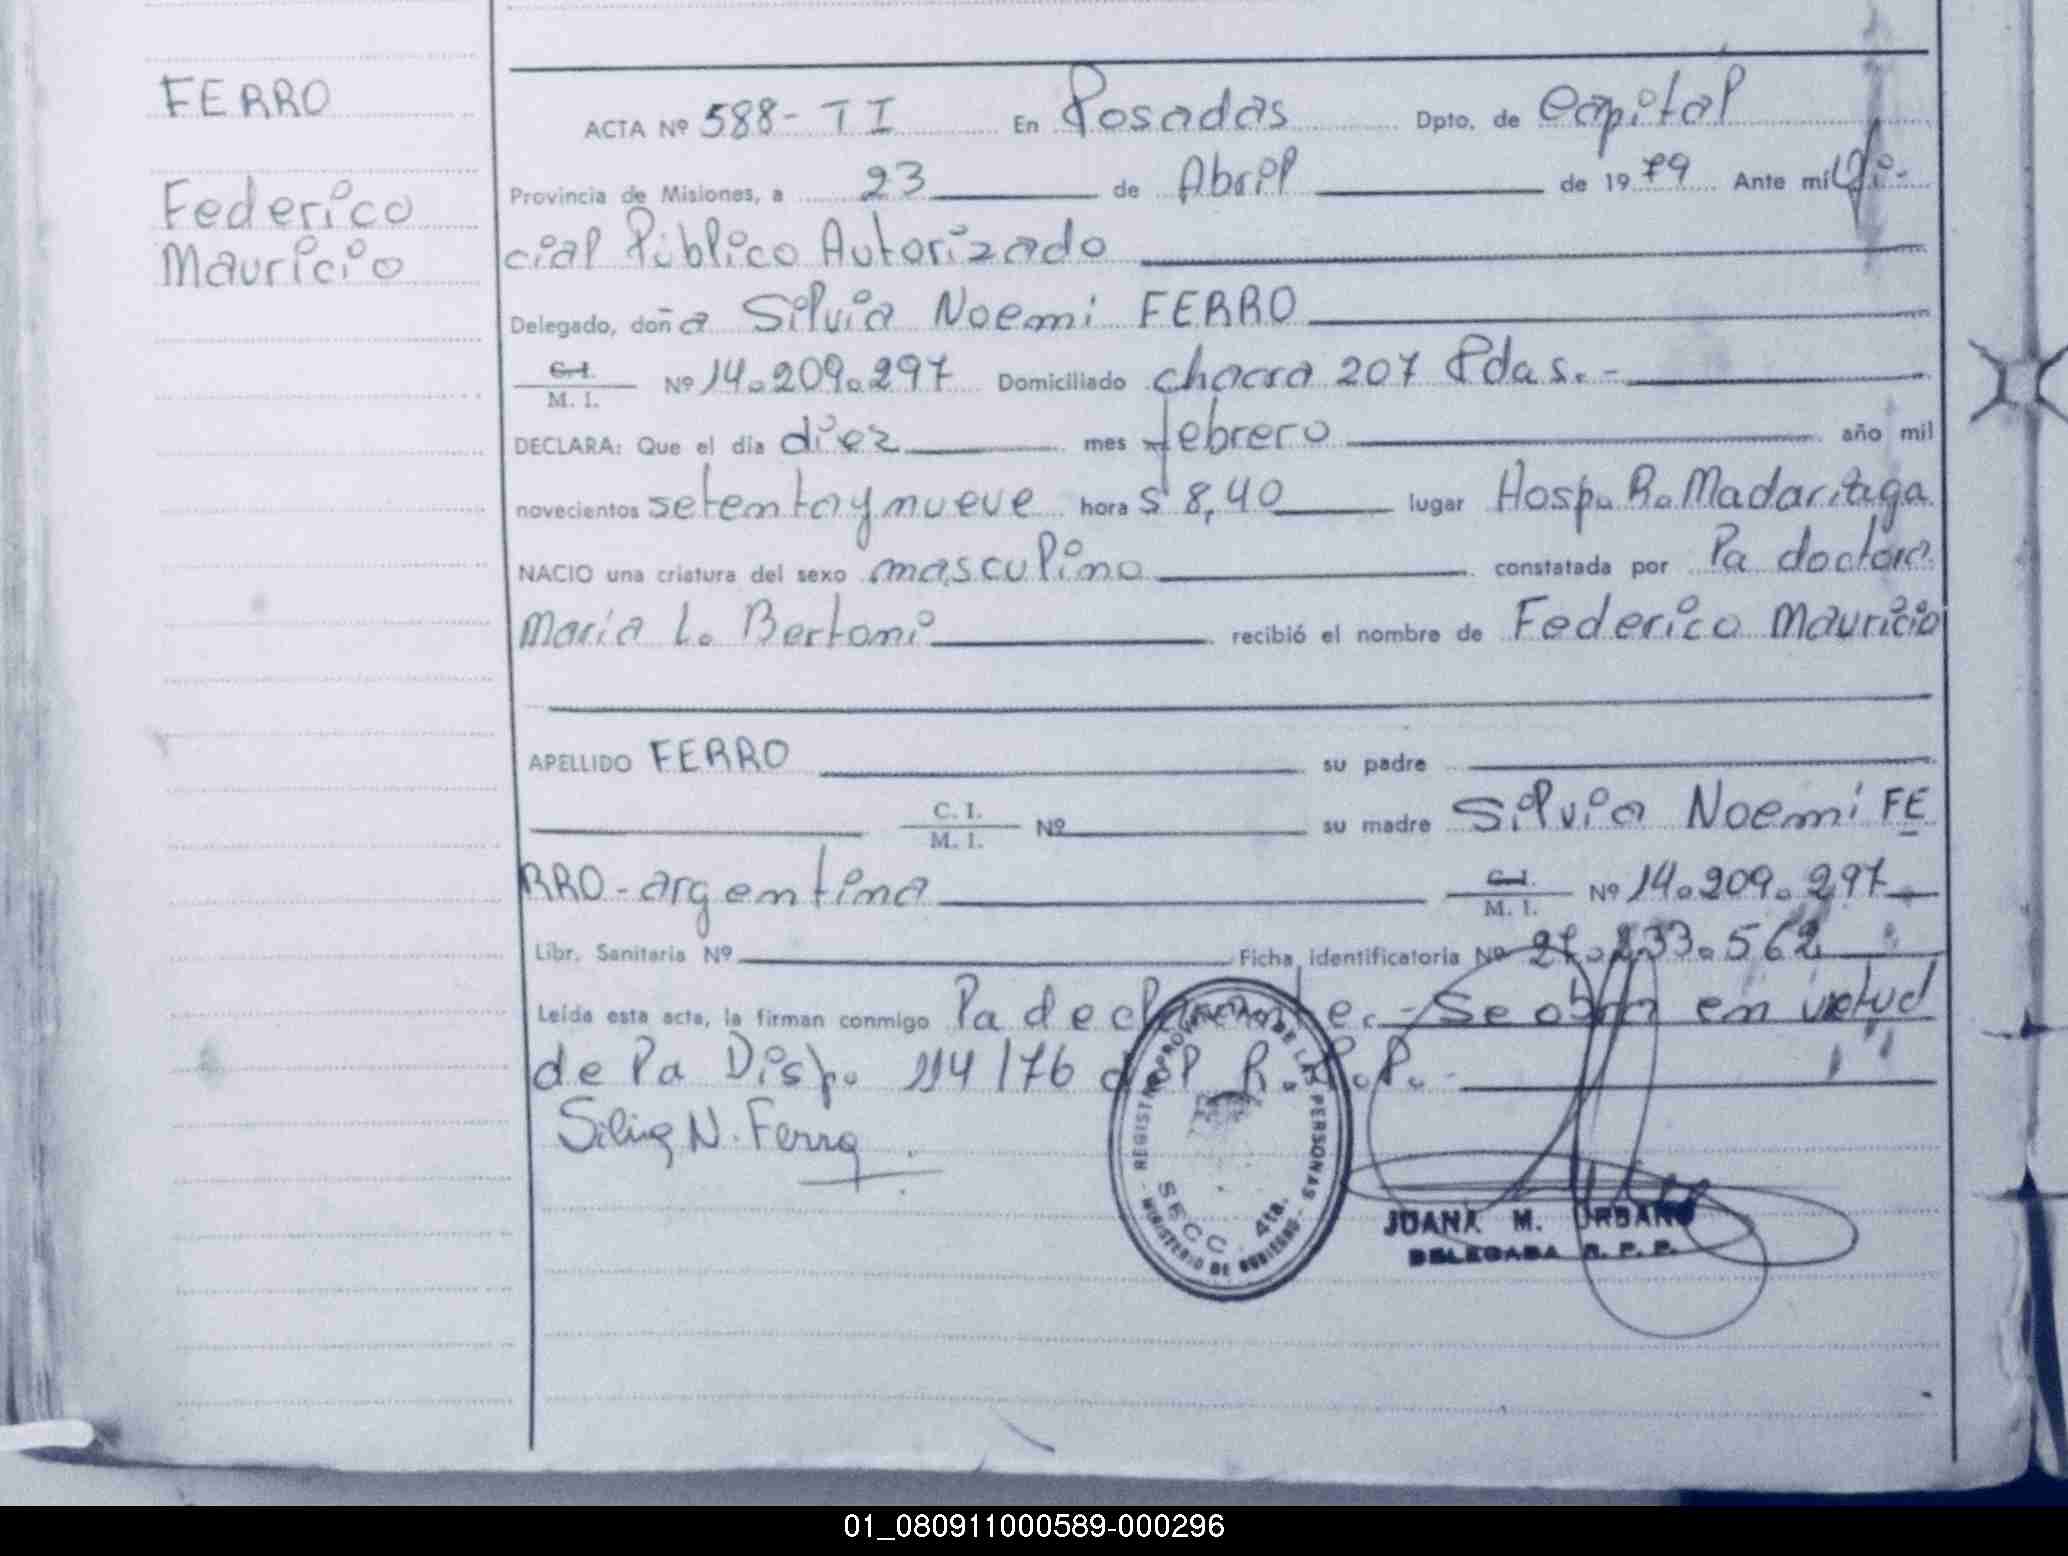 FERRO
Federico
Mauricio
ACTA Nº 588- TI En Posadas Dpto. de Capital
Provincia de Misiones, a 23 de Abril de 1979 Ante mi Ofi-
cial Público Autorizado
Delegado, doña Silvia Noemi FERRO
C.I.
M. I.
Nº 14.209.297 Domiciliado chacra 207 Pdas.-
DECLARA: Que el día diez mes febrero año mil
novecientos setenta y nueve hora s 8,40 lugar Hosp. R. Madariaga
NACIO una criatura del sexo masculino constatada por la doctora
Maria L. Bertoni recibió el nombre de Federico Mauricio
APELLIDO FERRO su padre
C. I.
M. I.
Nº su madre Silvia Noemi FE
RRO-argentina
C.I.
M. I.
Nº 14.209.297
Libr. Sanitaria Nº Ficha identificatoria Nº 27.233.562
Leída esta acta, la firman conmigo la declarante.- Se obra en virtud
de la Disp. 114/76 del R. P. P.-
Silvia N. Ferro
REGISTRO PROVINCIAL DE LAS PERSONAS
SECC. 4ta.
- MINISTERIO DE GOBIERNO -
JUANA M. URBANO
DELEGADA R. P. P.
01_080911000589-000296